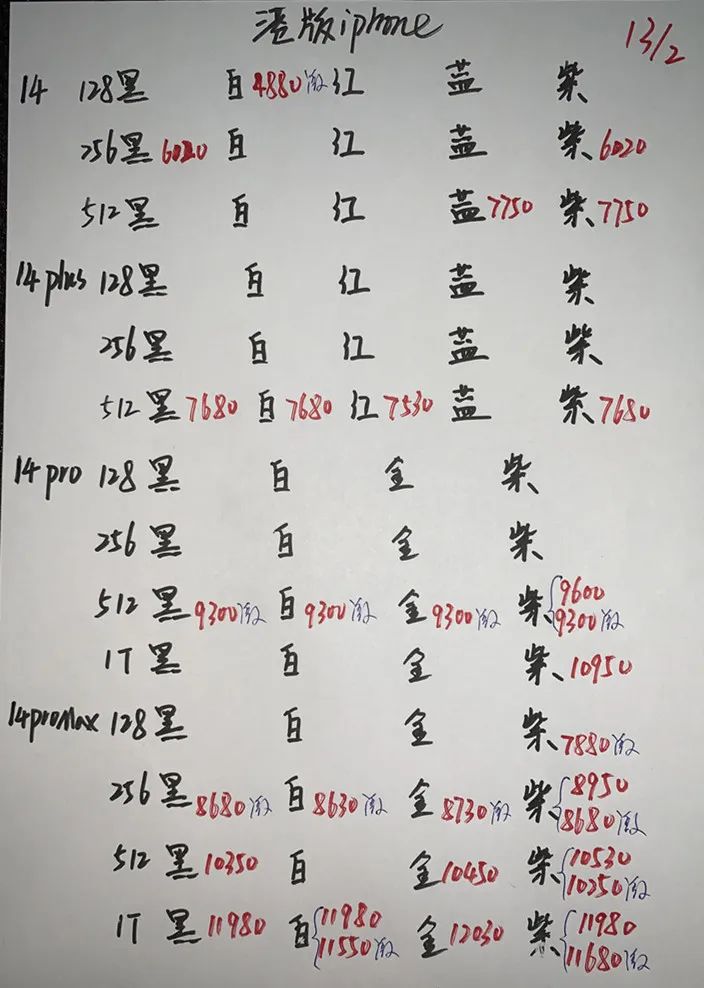 港版iphone 13/2
14 128黑 白4880激 红 蓝 紫
256黑6020 白 红 蓝 紫6020
512黑 白 红 蓝7750 紫7750
14plus 128黑 白 红 蓝 紫
256黑 白 红 蓝 紫
512黑7680 白7680 红7530 蓝 紫7680
14pro 128黑 白 金 紫
256黑 白 金 紫
512黑9300激 白9300激 金9300激 紫{9600
9300激
1T黑 白 金 紫10950
14proMax 128黑 白 金 紫7880激
256黑8680激 白8630激 金8730激 紫{8950
8680激
512黑10350 白 金10450 紫{10530
10250激
1T黑11980 白{11980 金12030 紫{11980
11550激 11680激